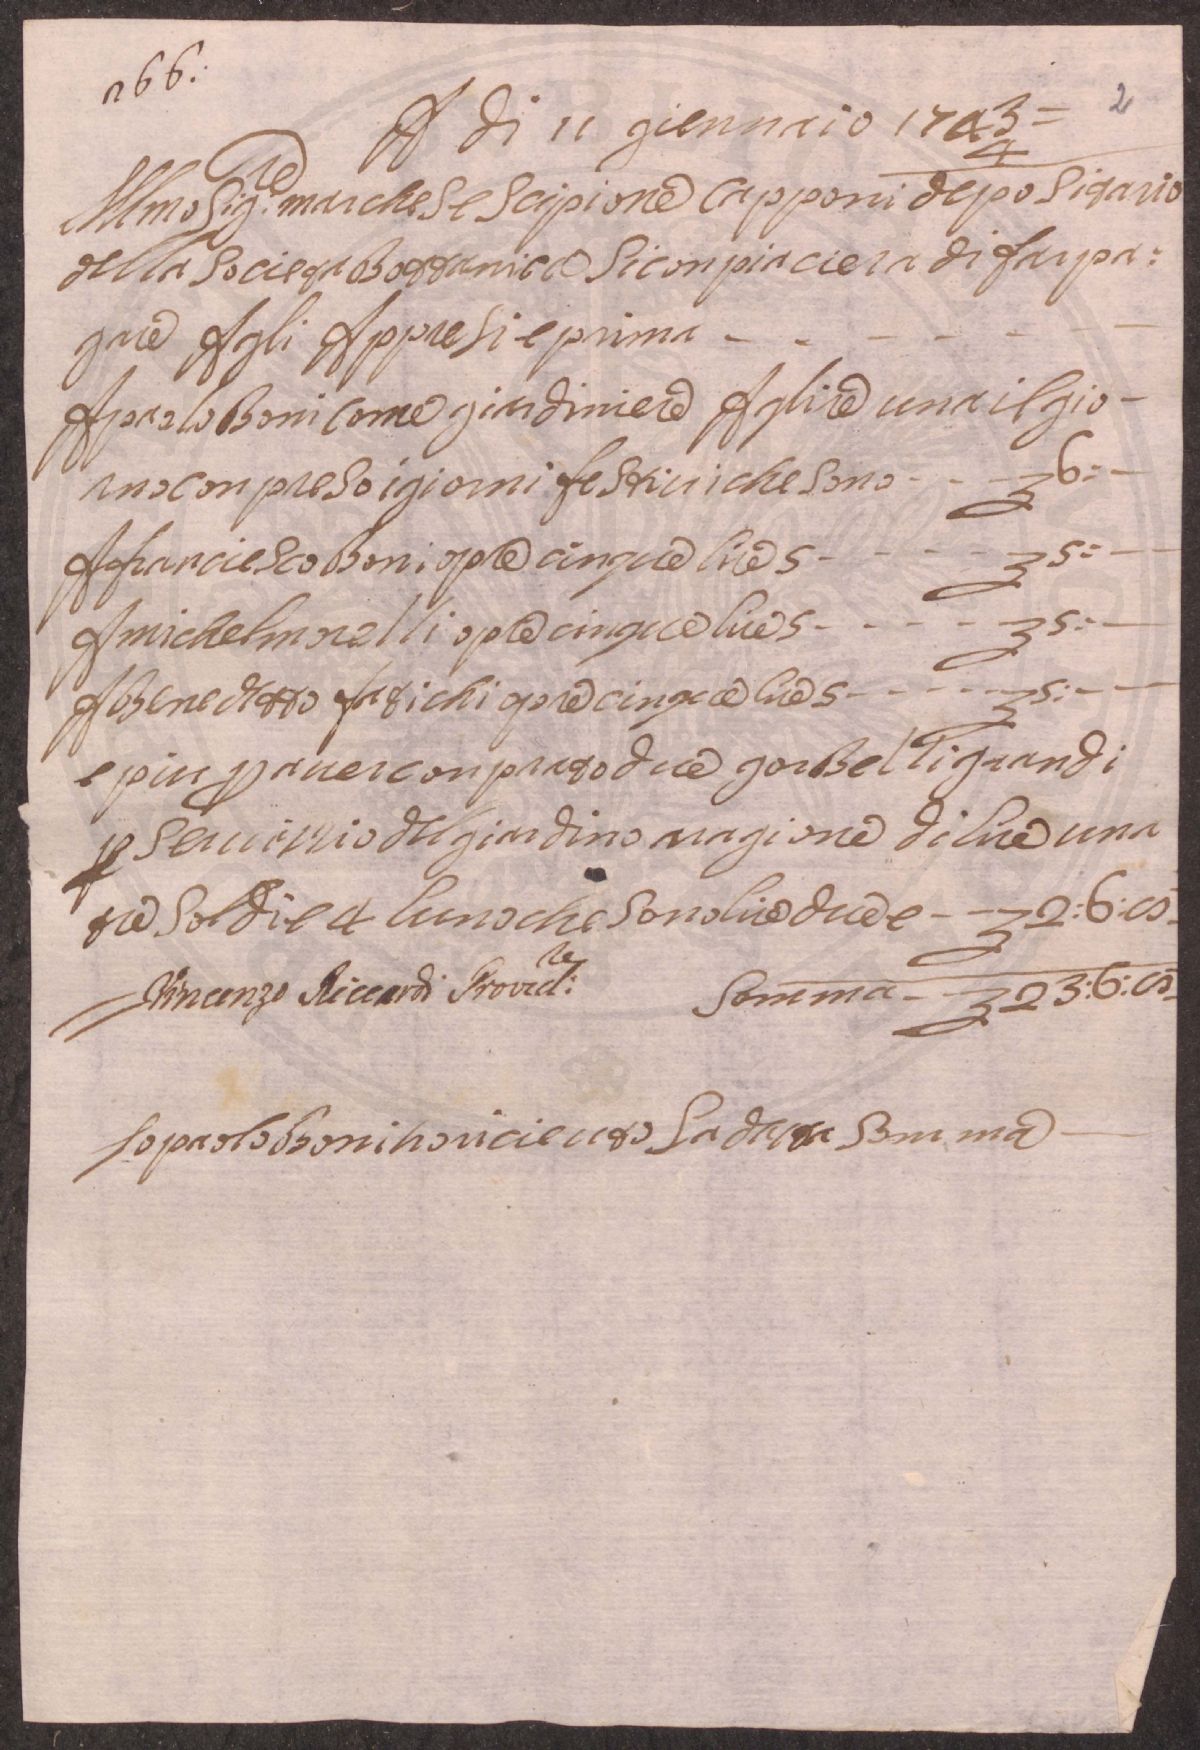 n 66:
2
A dì 11 giennaio 1743/4
Illmo Sig.re marchese Scipione Capponi depositario
della Societa Bottanica Si conpiaciera di far pa:
gare Agli Appresi e prima - - - - - -
A paolo Boni come giardiniere A lire una il gio-
rno conpreso i giorni festivi che sono - - - £ 6: -
A franciesco Boni opre cinque lire 5 - - - - £ 5: -
A michel morelli opre cinque lire 5 - - - - £ 5: -
A Benedetto fatichi opre cinque lire 5 - - - - £ 5: -
e piu p aver conprato due gorbelli grandi
p servizzio del giardino a ragione di lire una
tre Soldi e 4 luno che sono lire due e - - £ 2: 6: 8
Vincenzo Riccardi Provid.re: Somma - £ 23: 6: 8
Io paolo Boni ho ricieuto la detta somma